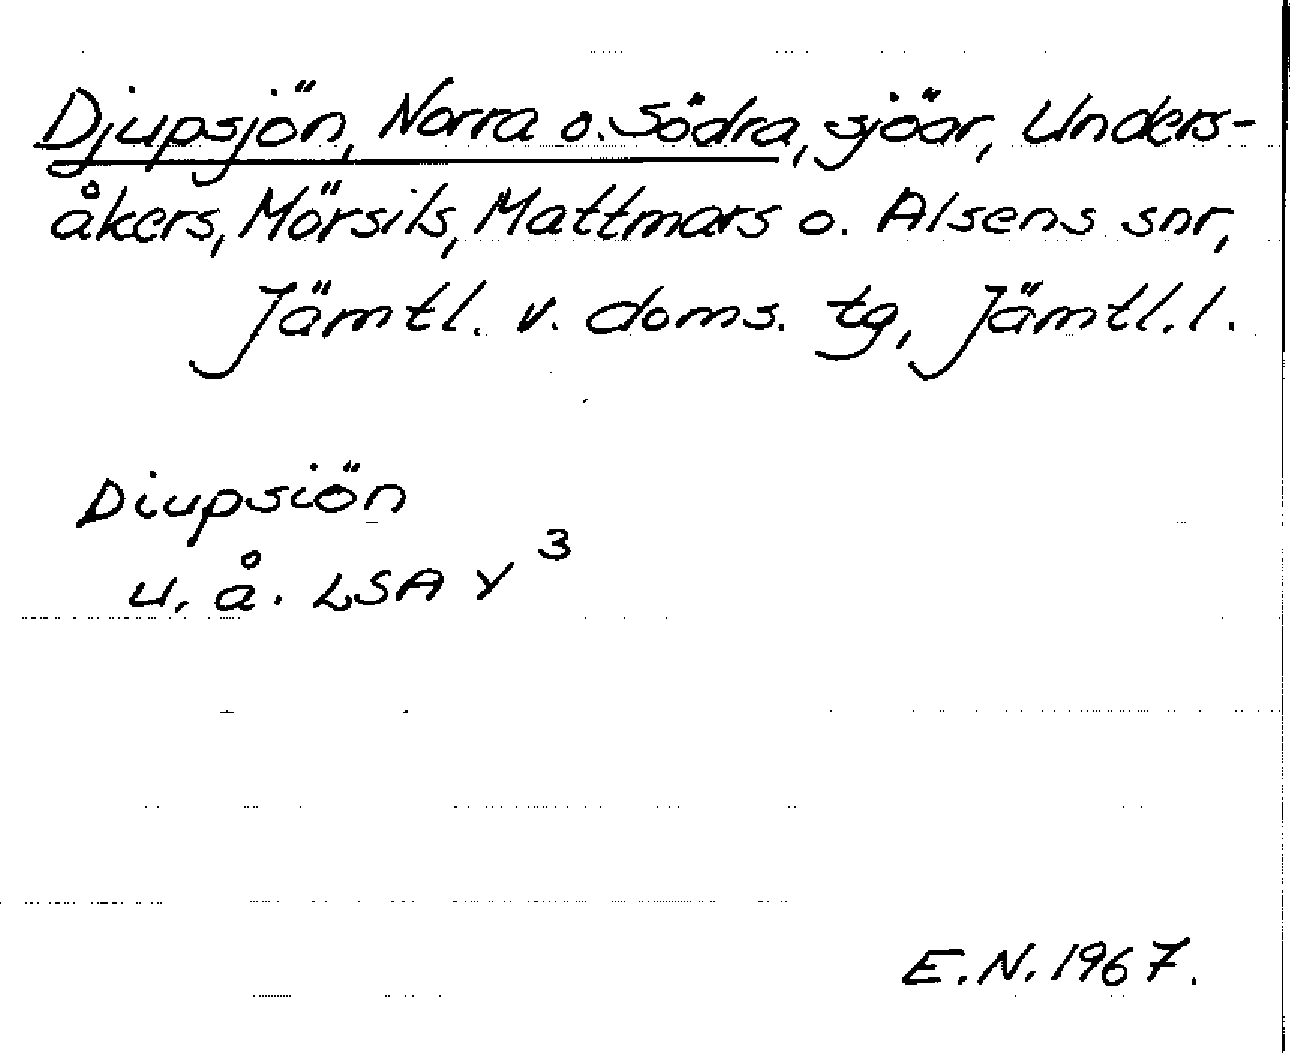 Djupsjön, Norra o. Södra, sjöar, Unders-
åkers, Mörsils, Mattmars o. Alsens snr,
Jämtl. v. doms. tg, Jämtl. l.
Diupsiön
u. å. LSA Y 3
E.N. 1967.